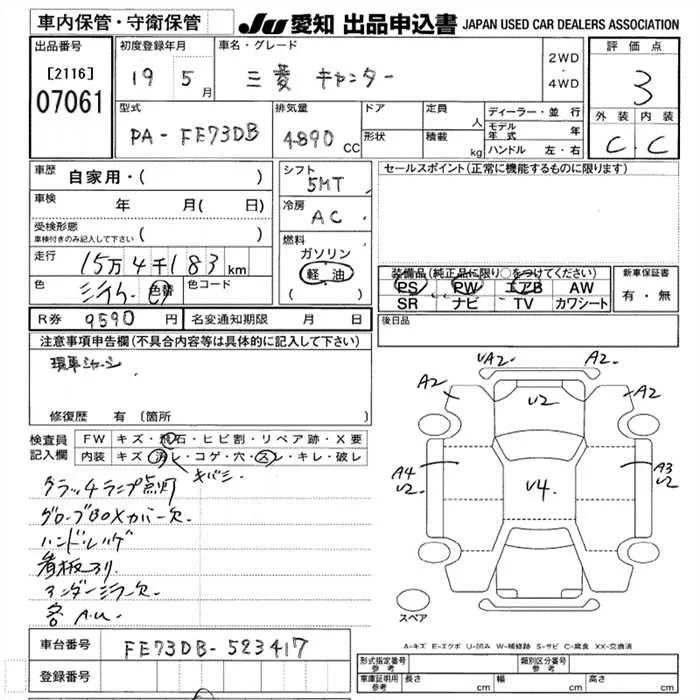 車内保管・守衛保管 JU 愛知 出品申込書 JAPAN USED CAR DEALERS ASSOCIATION
出品番号 初度登録年月 車名・グレード 評価点
[2116] 19 5月 三菱 キャンター 2WD・4WD 3
07061 型式 排気量 ドア 定員 ディーラー・並行 外装 内装
PA-FE73DB 4890 CC 形状 人 モデル年式 年 C C
積載 kg ハンドル 左・右
車歴 自家用・( ) シフト セールスポイント(正常に機能するものに限ります)
5MT
車検 年 月( 日) 冷房
AC
受検形態 車検付きのみ記入して下さい ( ) 燃料
ガソリン
走行 15万4千183km 軽油
装備品(純正品に限り○をつけてください) 新車保証書
色 色替 色コード PS PW エアB AW 有・無
SR ナビ TV カワシート
R券 9590円 名変通知期限 月 日 後日品
注意事項申告欄(不具合内容等は具体的に記入して下さい)
修復歴 有(箇所
検査員記入欄 FW キズ・飛石・ヒビ割・リペア跡・X要
内装 キズ・汚レ・コゲ・穴・スレ・キレ・破レ
キバミ
クラッチランプ点灯
グローブBOXカバー欠
ハンドルハゲ
看板アリ
アンダーミラー欠
各A.U
UA2 A2
A2 U2 A2
A4 U2 U4 A3 U2
スペア
A-キズ E-エクボ U-凹み W-補修跡 S-サビ C-腐食 XX-交換済
車台番号 FE73DB-523417
登録番号
形式指定番号 参考 類別区分番号 参考
車庫証明用 参考 長さ cm 幅 cm 高さ cm